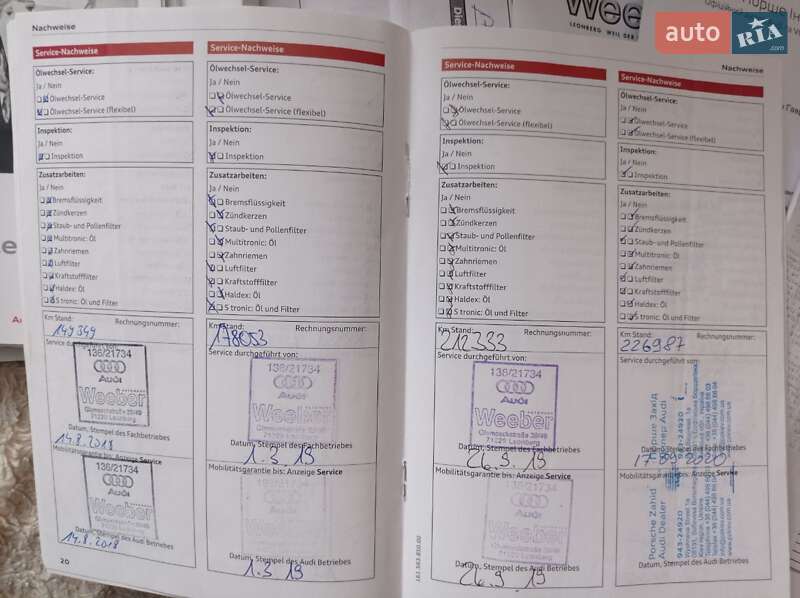 Nachweise
Service-Nachweise
Ölwechsel-Service:
Ja / Nein
Ölwechsel-Service
Ölwechsel-Service (flexibel)
Inspektion:
Ja / Nein
Inspektion
Zusatzarbeiten:
Ja / Nein
Bremsflüssigkeit
Zündkerzen
Staub- und Pollenfilter
Multitronic: Öl
Zahnriemen
Luftfilter
Kraftstofffilter
Haldex: Öl
S tronic: Öl und Filter
Km Stand: Rechnungsnummer:
149349
Service durchgeführt von:
136/21734
Audi
Weeber
Glemseckstraße 39/49
71229 Leonberg
Datum, Stempel des Fachbetriebes
14.8.2018
Mobilitätsgarantie bis: Anzeige Service
136/21734
Audi
Weeber
14.8.2018
Datum, Stempel des Audi Betriebes
20
Service-Nachweise
Ölwechsel-Service:
Ja / Nein
Ölwechsel-Service
Ölwechsel-Service (flexibel)
Inspektion:
Ja / Nein
Inspektion
Zusatzarbeiten:
Ja / Nein
Bremsflüssigkeit
Zündkerzen
Staub- und Pollenfilter
Multitronic: Öl
Zahnriemen
Luftfilter
Kraftstofffilter
Haldex: Öl
S tronic: Öl und Filter
Km Stand: Rechnungsnummer:
178053
Service durchgeführt von:
136/21734
Audi
Weeber
Datum, Stempel des Fachbetriebes
1.3.19
Mobilitätsgarantie bis: Anzeige Service
Datum, Stempel des Audi Betriebes
1.3.19
wee
LEONBERG WEIL DER
auto RIA
.com
Nachweise
Service-Nachweise
Ölwechsel-Service:
Ja / Nein
Ölwechsel-Service
Ölwechsel-Service (flexibel)
Inspektion:
Ja / Nein
Inspektion
Zusatzarbeiten:
Ja / Nein
Bremsflüssigkeit
Zündkerzen
Staub- und Pollenfilter
Multitronic: Öl
Zahnriemen
Luftfilter
Kraftstofffilter
Haldex: Öl
S tronic: Öl und Filter
Km Stand: Rechnungsnummer:
212333
Service durchgeführt von:
136/21734
Audi
Weeber
71229 Leonberg
Datum, Stempel des Fachbetriebes
26.9.19
Mobilitätsgarantie bis: Anzeige Service
136/21734
Audi
Weeber
Datum, Stempel des Audi Betriebes
26.9.19
161.563.850.00
Service-Nachweise
Ölwechsel-Service:
Ja / Nein
Ölwechsel-Service
Ölwechsel-Service (flexibel)
Inspektion:
Ja / Nein
Inspektion
Zusatzarbeiten:
Ja / Nein
Bremsflüssigkeit
Zündkerzen
Staub- und Pollenfilter
Multitronic: Öl
Zahnriemen
Luftfilter
Kraftstofffilter
Haldex: Öl
S tronic: Öl und Filter
Km Stand: Rechnungsnummer:
226987
Service durchgeführt von:
Захід
Audi
943-24920
Datum, Stempel des Fachbetriebes
17 09 2020
Mobilitätsgarantie bis: Anzeige Service
Porsche Zahid
Audi Dealer
943-24920
Datum, Stempel des Audi Betriebes